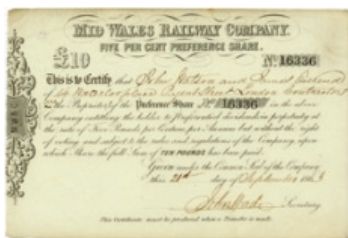 MID WALES RAILWAY COMPANY.
FIVE PER CENT PREFERENCE SHARE.
£10 No. 16336
This is to Certify that John Watson and
of 14 Waterloo place Regent Street London Contractors
the Proprietors of the Preference Share No. 16336 in the above
Company entitling the holder to Preferential dividends in perpetuity at
the rate of Five Pounds per Centum per Annum but without the right
of voting and subject to the rules and regulations of the Company upon
which Share the full Sum of TEN POUNDS has been paid.
GIVEN under the Common Seal of the Company
this 28th day of September 186
John Wade Secretary
This Certificate must be produced when a Transfer is made.